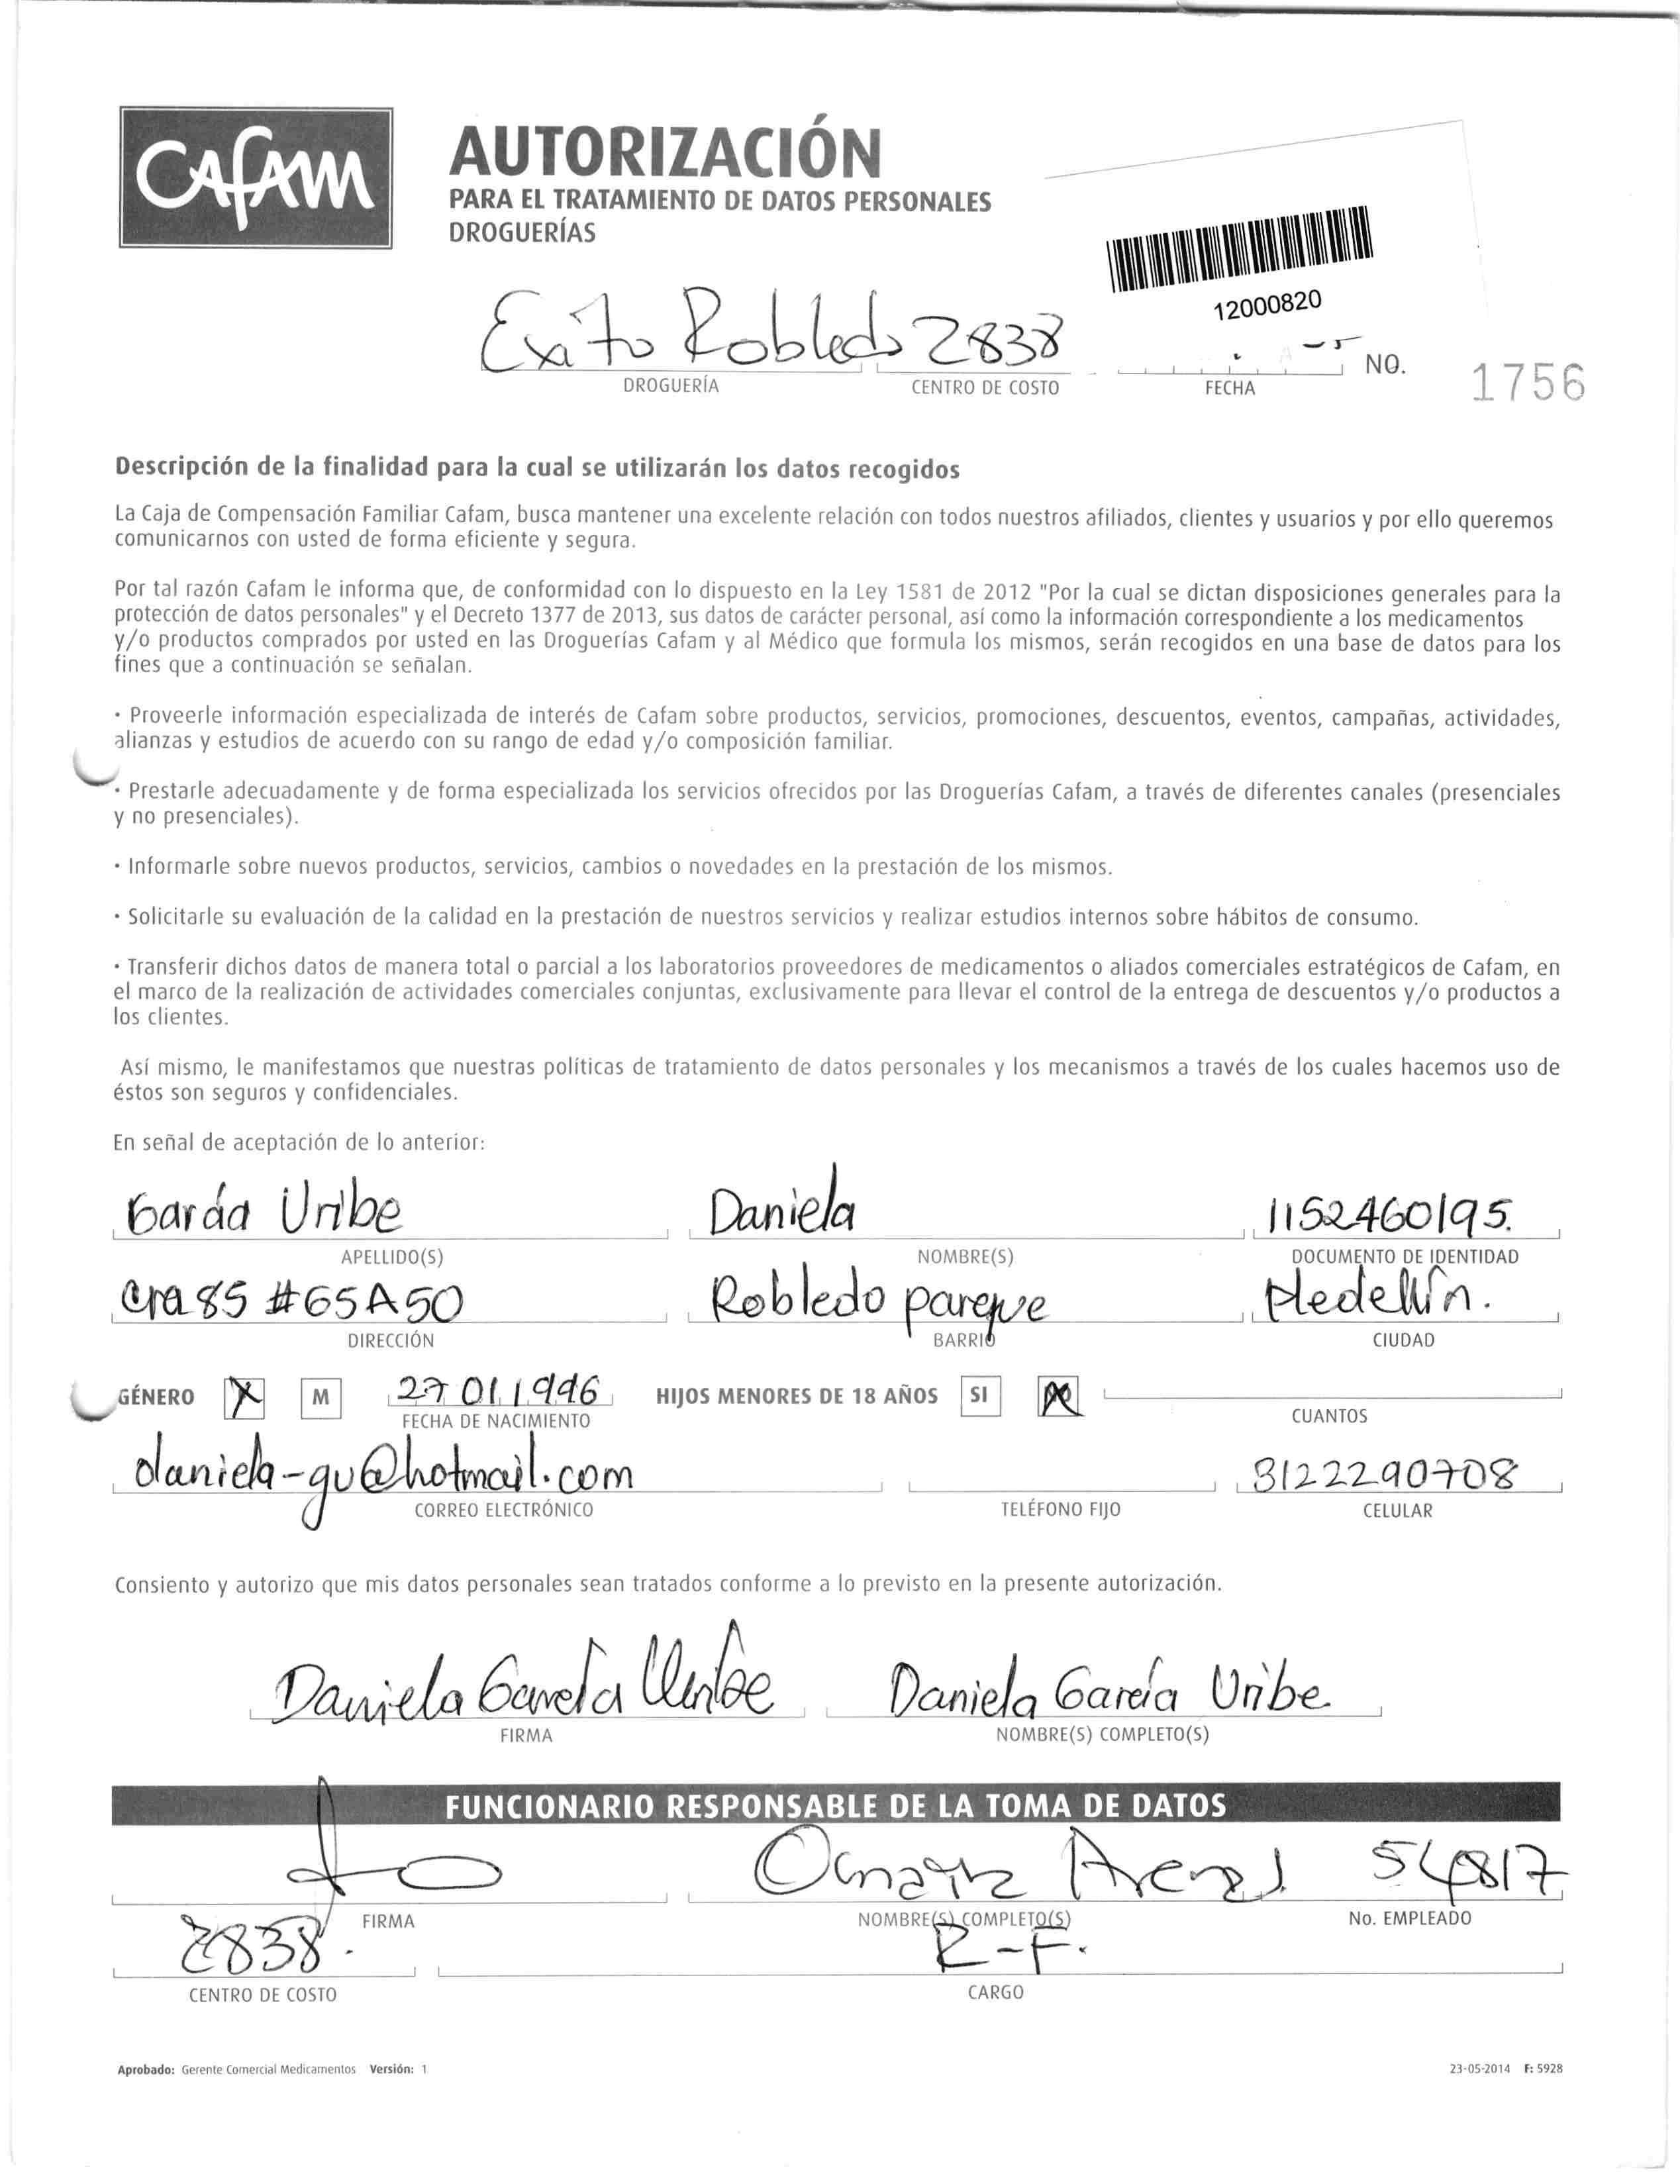 CAfAM
AUTORIZACIÓN
PARA EL TRATAMIENTO DE DATOS PERSONALES
DROGUERÍAS
12000820
Exito Robledo 2838
DROGUERÍA CENTRO DE COSTO FECHA NO. 1756
Descripción de la finalidad para la cual se utilizarán los datos recogidos
La Caja de Compensación Familiar Cafam, busca mantener una excelente relación con todos nuestros afiliados, clientes y usuarios y por ello queremos
comunicarnos con usted de forma eficiente y segura.
Por tal razón Cafam le informa que, de conformidad con lo dispuesto en la Ley 1581 de 2012 "Por la cual se dictan disposiciones generales para la
protección de datos personales" y el Decreto 1377 de 2013, sus datos de carácter personal, así como la información correspondiente a los medicamentos
y/o productos comprados por usted en las Droguerías Cafam y al Médico que formula los mismos, serán recogidos en una base de datos para los
fines que a continuación se señalan.
· Proveerle información especializada de interés de Cafam sobre productos, servicios, promociones, descuentos, eventos, campañas, actividades,
alianzas y estudios de acuerdo con su rango de edad y/o composición familiar.
· Prestarle adecuadamente y de forma especializada los servicios ofrecidos por las Droguerías Cafam, a través de diferentes canales (presenciales
y no presenciales).
· Informarle sobre nuevos productos, servicios, cambios o novedades en la prestación de los mismos.
· Solicitarle su evaluación de la calidad en la prestación de nuestros servicios y realizar estudios internos sobre hábitos de consumo.
· Transferir dichos datos de manera total o parcial a los laboratorios proveedores de medicamentos o aliados comerciales estratégicos de Cafam, en
el marco de la realización de actividades comerciales conjuntas, exclusivamente para llevar el control de la entrega de descuentos y/o productos a
los clientes.
Así mismo, le manifestamos que nuestras políticas de tratamiento de datos personales y los mecanismos a través de los cuales hacemos uso de
éstos son seguros y confidenciales.
En señal de aceptación de lo anterior:
García Uribe Daniela 1152460195.
APELLIDO(S) NOMBRE(S) DOCUMENTO DE IDENTIDAD
Cra 85 #65A50 Robledo parque Medellín.
DIRECCIÓN BARRIO CIUDAD
GÉNERO X M 27 01 1996 HIJOS MENORES DE 18 AÑOS SI X
FECHA DE NACIMIENTO CUANTOS
daniela-gu@hotmail.com 3122290708
CORREO ELECTRÓNICO TELÉFONO FIJO CELULAR
Consiento y autorizo que mis datos personales sean tratados conforme a lo previsto en la presente autorización.
Daniela García Uribe Daniela García Uribe
FIRMA NOMBRE(S) COMPLETO(S)
FUNCIONARIO RESPONSABLE DE LA TOMA DE DATOS
54817
FIRMA NOMBRE(S) COMPLETO(S) No. EMPLEADO
2838. R-F.
CENTRO DE COSTO CARGO
Aprobado: Gerente Comercial Medicamentos Versión: 1 23-05-2014 F: 5928